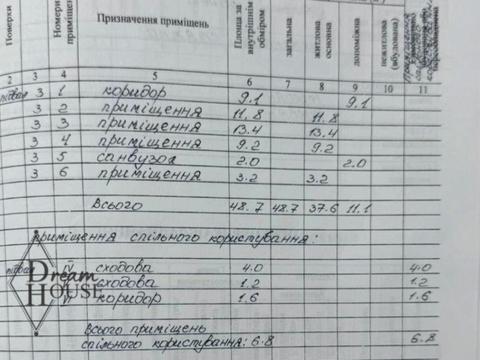 Поверхи Номери приміщень Призначення приміщень Площа за внутрішнім обміром загальна житлова основна допоміжна нежитлова (вбудована)
2 3 4 5 6 7 8 9 10 11
підвал 3 1 коридор 9.1 9.1
3 2 приміщення 11,8 11.8
3 3 приміщення 13.4 13.4
3 4 приміщення 9.2 9.2
3 5 санвузол 2.0 2.0
3 6 приміщення 3.2 3.2
Всього 48.7 48.7 37.6 11.1
приміщення спільного користування:
підвал IV сходова 4.0 4.0
сходова 1.2 1.2
коридор 1.6 1.6
Dream House
Всього приміщень
спільного користування: 6.8 6.8